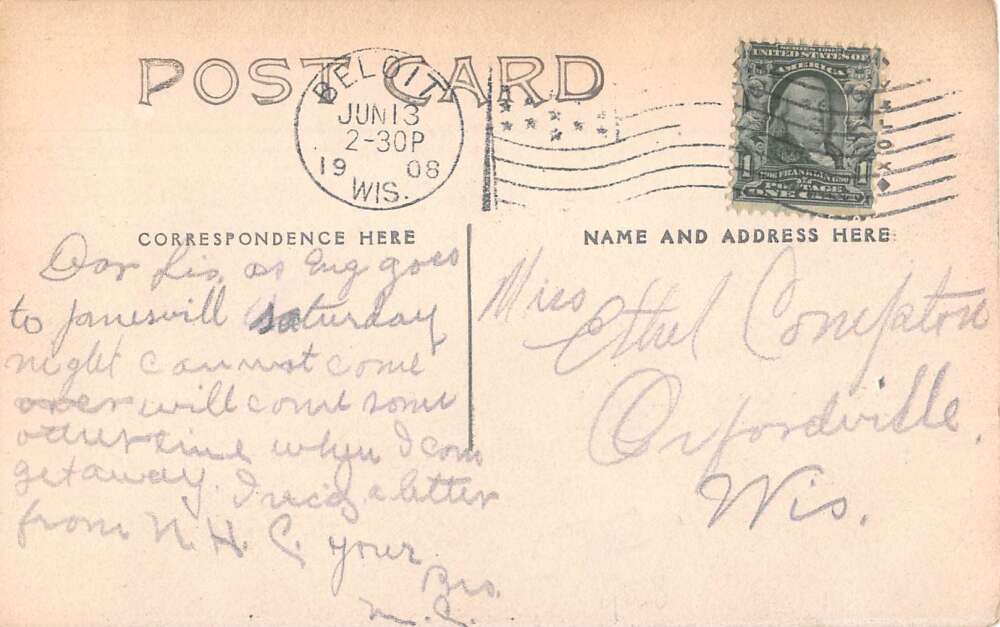 POST CARD
BELOIT
JUN 13
2-30P
19 08
WIS.
SERIES 1902
UNITED STATES OF
AMERICA
1 1
FRANKLIN
POSTAGE
ONE CENT
CORRESPONDENCE HERE
NAME AND ADDRESS HERE
Dear Sis, as Eug goes
to Janesvill Saturday
night cannot come
over will come some
other time when I can
getaway. I recd a letter
from N. H. C. your
Bro.
M. C.
Miss
Ethel Compton
Orfordville,
Wis.